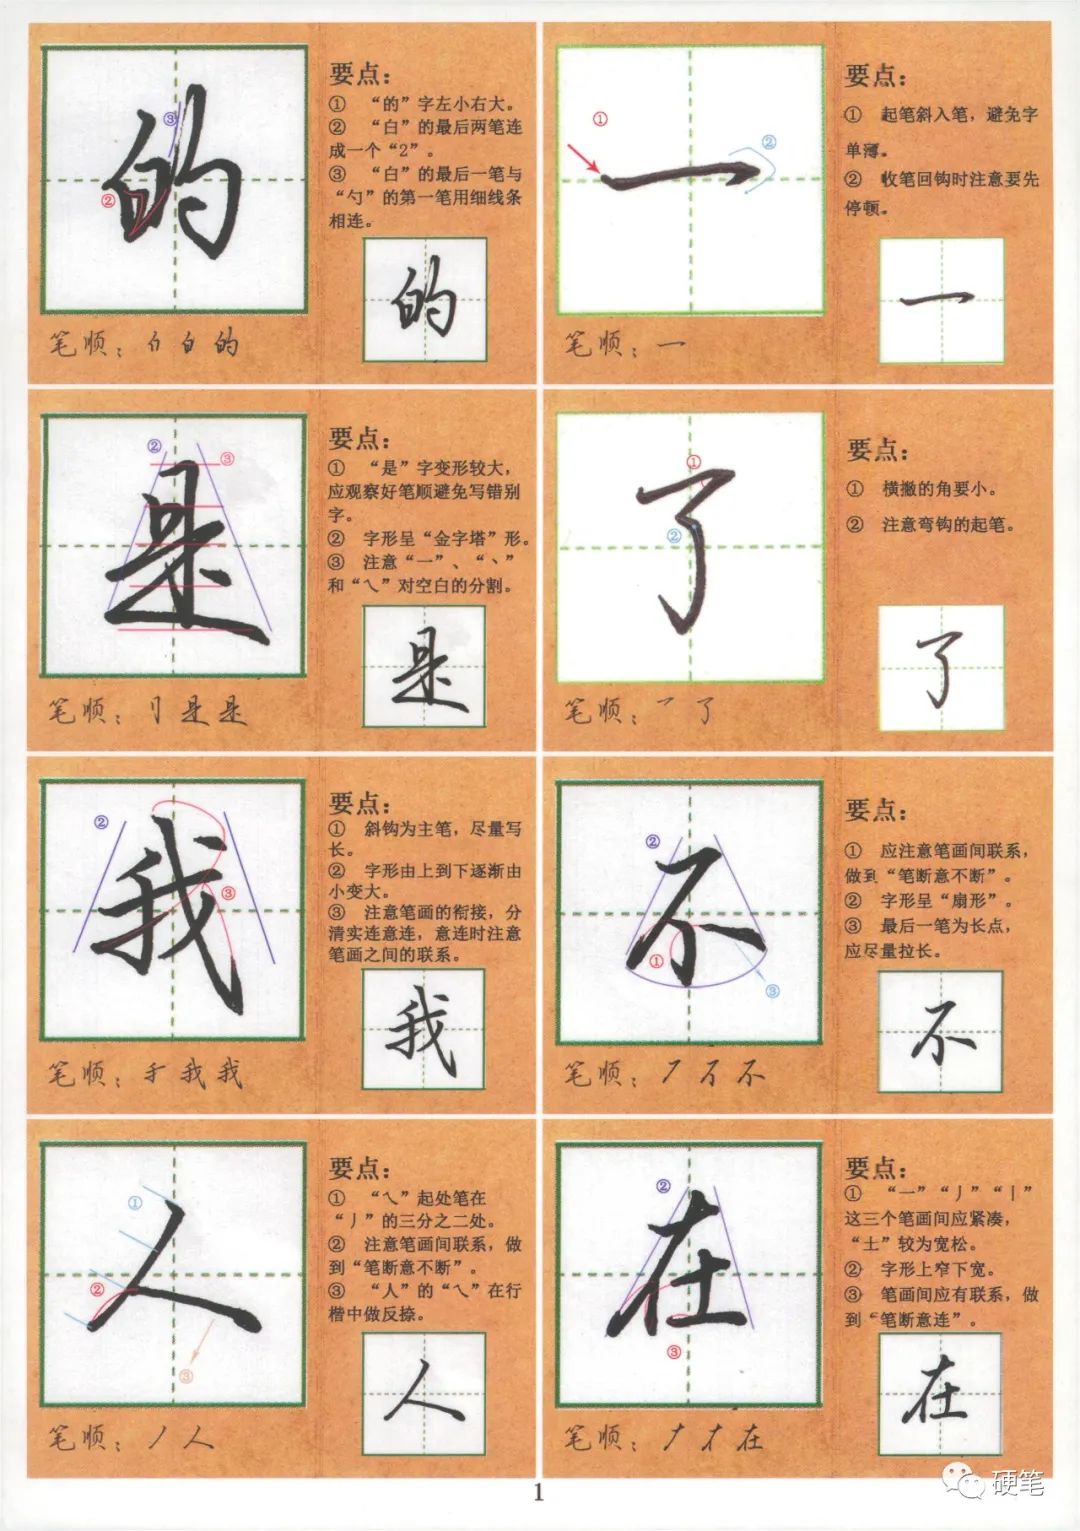 的
③
②
要点：
① “的”字左小右大。
② “白”的最后两笔连
成一个“2”。
③ “白”的最后一笔与
“勺”的第一笔用细线条
相连。
的
笔顺：白 的
一
①
②
要点：
① 起笔斜入笔，避免字
单薄。
② 收笔回钩时注意要先
停顿。
一
笔顺：一
是
②
③
要点：
① “是”字变形较大，
应观察好笔顺避免写错别
字。
② 字形呈“金字塔”形。
③ 注意“一”、“丶”
和“㇏”对空白的分割。
是
笔顺：是 是
了
①
②
要点：
① 横撇的角要小。
② 注意弯钩的起笔。
了
笔顺：乛 了
我
②
③
要点：
① 斜钩为主笔，尽量写
长。
② 字形由上到下逐渐由
小变大。
③ 注意笔画的衔接，分
清实连意连，意连时注意
笔画之间的联系。
我
笔顺：我 我
不
②
①
③
要点：
① 应注意笔画间联系，
做到“笔断意不断”。
② 字形呈“扇形”。
③ 最后一笔为长点，
应尽量拉长。
不
笔顺：丆 不 不
人
①
②
③
要点：
① “㇏”起处笔在
“丿”的三分之二处。
② 注意笔画间联系，做
到“笔断意不断”。
③ “人”的“㇏”在行
楷中做反捺。
人
笔顺：丿 人
在
②
③
要点：
① “一”“丿”“丨”
这三个笔画间应紧凑，
“土”较为宽松。
② 字形上窄下宽。
③ 笔画间应有联系，做
到“笔断意连”。
在
笔顺：𠂇 才 在
1
硬笔